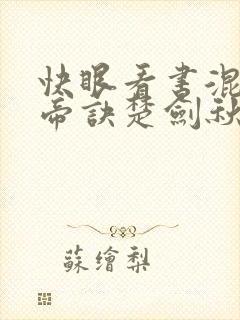 快眼看书混
帝訣楚劍秋
蘇繪梨